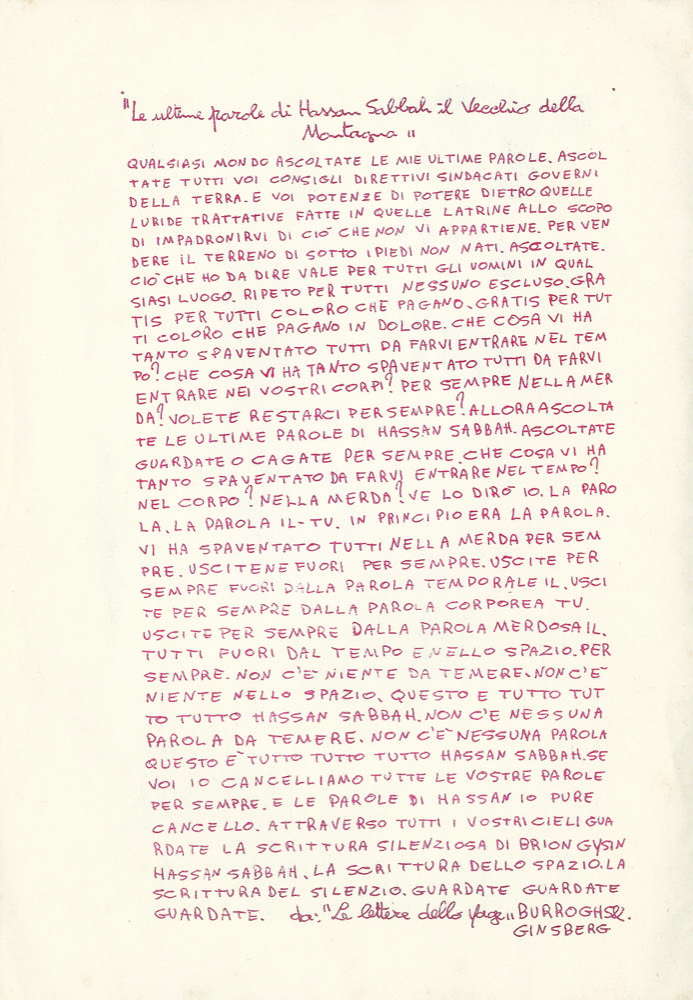 "Le ultime parole di Hassan Sabbah il Vecchio della
Montagna"
QUALSIASI MONDO ASCOLTATE LE MIE ULTIME PAROLE. ASCOL
TATE TUTTI VOI CONSIGLI DIRETTIVI SINDACATI GOVERNI
DELLA TERRA. E VOI POTENZE DI POTERE DIETRO QUELLE
LURIDE TRATTATIVE FATTE IN QUELLE LATRINE ALLO SCOPO
DI IMPADRONIRVI DI CIO' CHE NON VI APPARTIENE. PER VEN
DERE IL TERRENO DI SOTTO I PIEDI NON NATI. ASCOLTATE.
CIO' CHE HO DA DIRE VALE PER TUTTI GLI UOMINI IN QUAL
SIASI LUOGO. RIPETO PER TUTTI NESSUNO ESCLUSO. GRA
TIS PER TUTTI COLORO CHE PAGANO. GRATIS PER TUT
TI COLORO CHE PAGANO IN DOLORE. CHE COSA VI HA
TANTO SPAVENTATO TUTTI DA FARVI ENTRARE NEL TEM
PO? CHE COSA VI HA TANTO SPAVENTATO TUTTI DA FARVI
ENTRARE NEI VOSTRI CORPI? PER SEMPRE NELLA MER
DA? VOLETE RESTARCI PER SEMPRE? ALLORA ASCOLTA
TE LE ULTIME PAROLE DI HASSAN SABBAH. ASCOLTATE
GUARDATE O CAGATE PER SEMPRE. CHE COSA VI HA
TANTO SPAVENTATO DA FARVI ENTRARE NEL TEMPO?
NEL CORPO? NELLA MERDA? VE LO DIRO' IO. LA PARO
LA. LA PAROLA IL-TU. IN PRINCIPIO ERA LA PAROLA.
VI HA SPAVENTATO TUTTI NELLA MERDA PER SEM
PRE. USCITENE FUORI PER SEMPRE. USCITE PER
SEMPRE FUORI DALLA PAROLA TEMPORALE IL. USCI
TE PER SEMPRE DALLA PAROLA CORPOREA TU.
USCITE PER SEMPRE DALLA PAROLA MERDOSA IL.
TUTTI FUORI DAL TEMPO E NELLO SPAZIO. PER
SEMPRE. NON C'E' NIENTE DA TEMERE. NON C'E'
NIENTE NELLO SPAZIO. QUESTO E TUTTO TUT
TO TUTTO HASSAN SABBAH. NON C'E NESSUNA
PAROLA DA TEMERE. NON C'E' NESSUNA PAROLA
QUESTO E' TUTTO TUTTO TUTTO HASSAN SABBAH. SE
VOI IO CANCELLIAMO TUTTE LE VOSTRE PAROLE
PER SEMPRE. E LE PAROLE DI HASSAN IO PURE
CANCELLO. ATTRAVERSO TUTTI I VOSTRI CIELI GUA
RDATE LA SCRITTURA SILENZIOSA DI BRION GYSIN
HASSAN SABBAH. LA SCRITTURA DELLO SPAZIO. LA
SCRITTURA DEL SILENZIO. GUARDATE GUARDATE
GUARDATE. da: "Le lettere dello yage" BURROGHS &.
GINSBERG